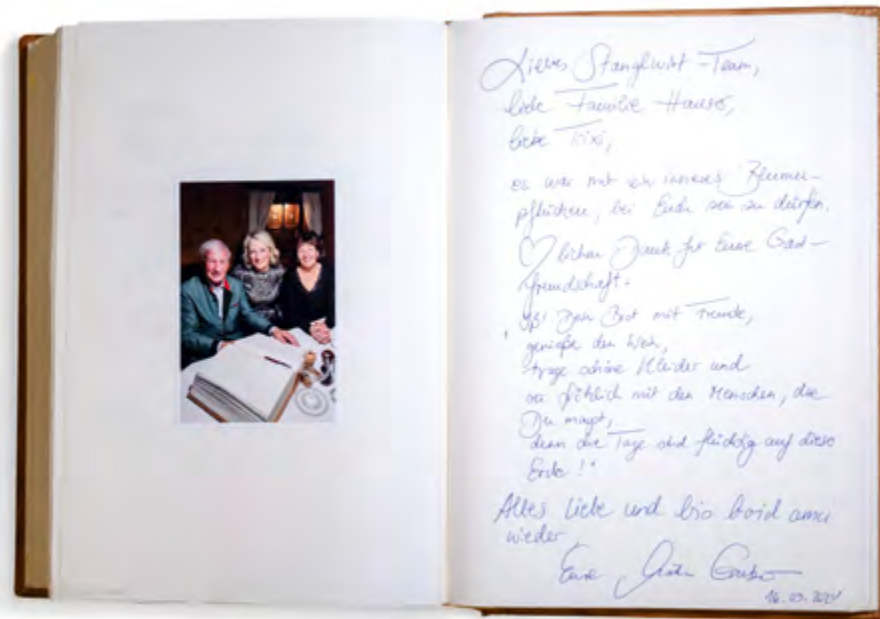 Liebes Stanglwirt-Team,
liebe Familie Hauser,
liebe Trixi,
es war mir ein inneres Blumen-
pflücken, bei Euch sein zu dürfen.
♡lichen Dank für Eure Gast-
freundschaft.
Iß Dein Brot mit Freude,
genieße den Wein,
trage schöne Kleider und
sei fröhlich mit den Menschen, die
Du magst,
denn die Tage sind flüchtig auf dieser
Erde!"
Alles Liebe und bis boid amoi
wieder
Eure
16.03.